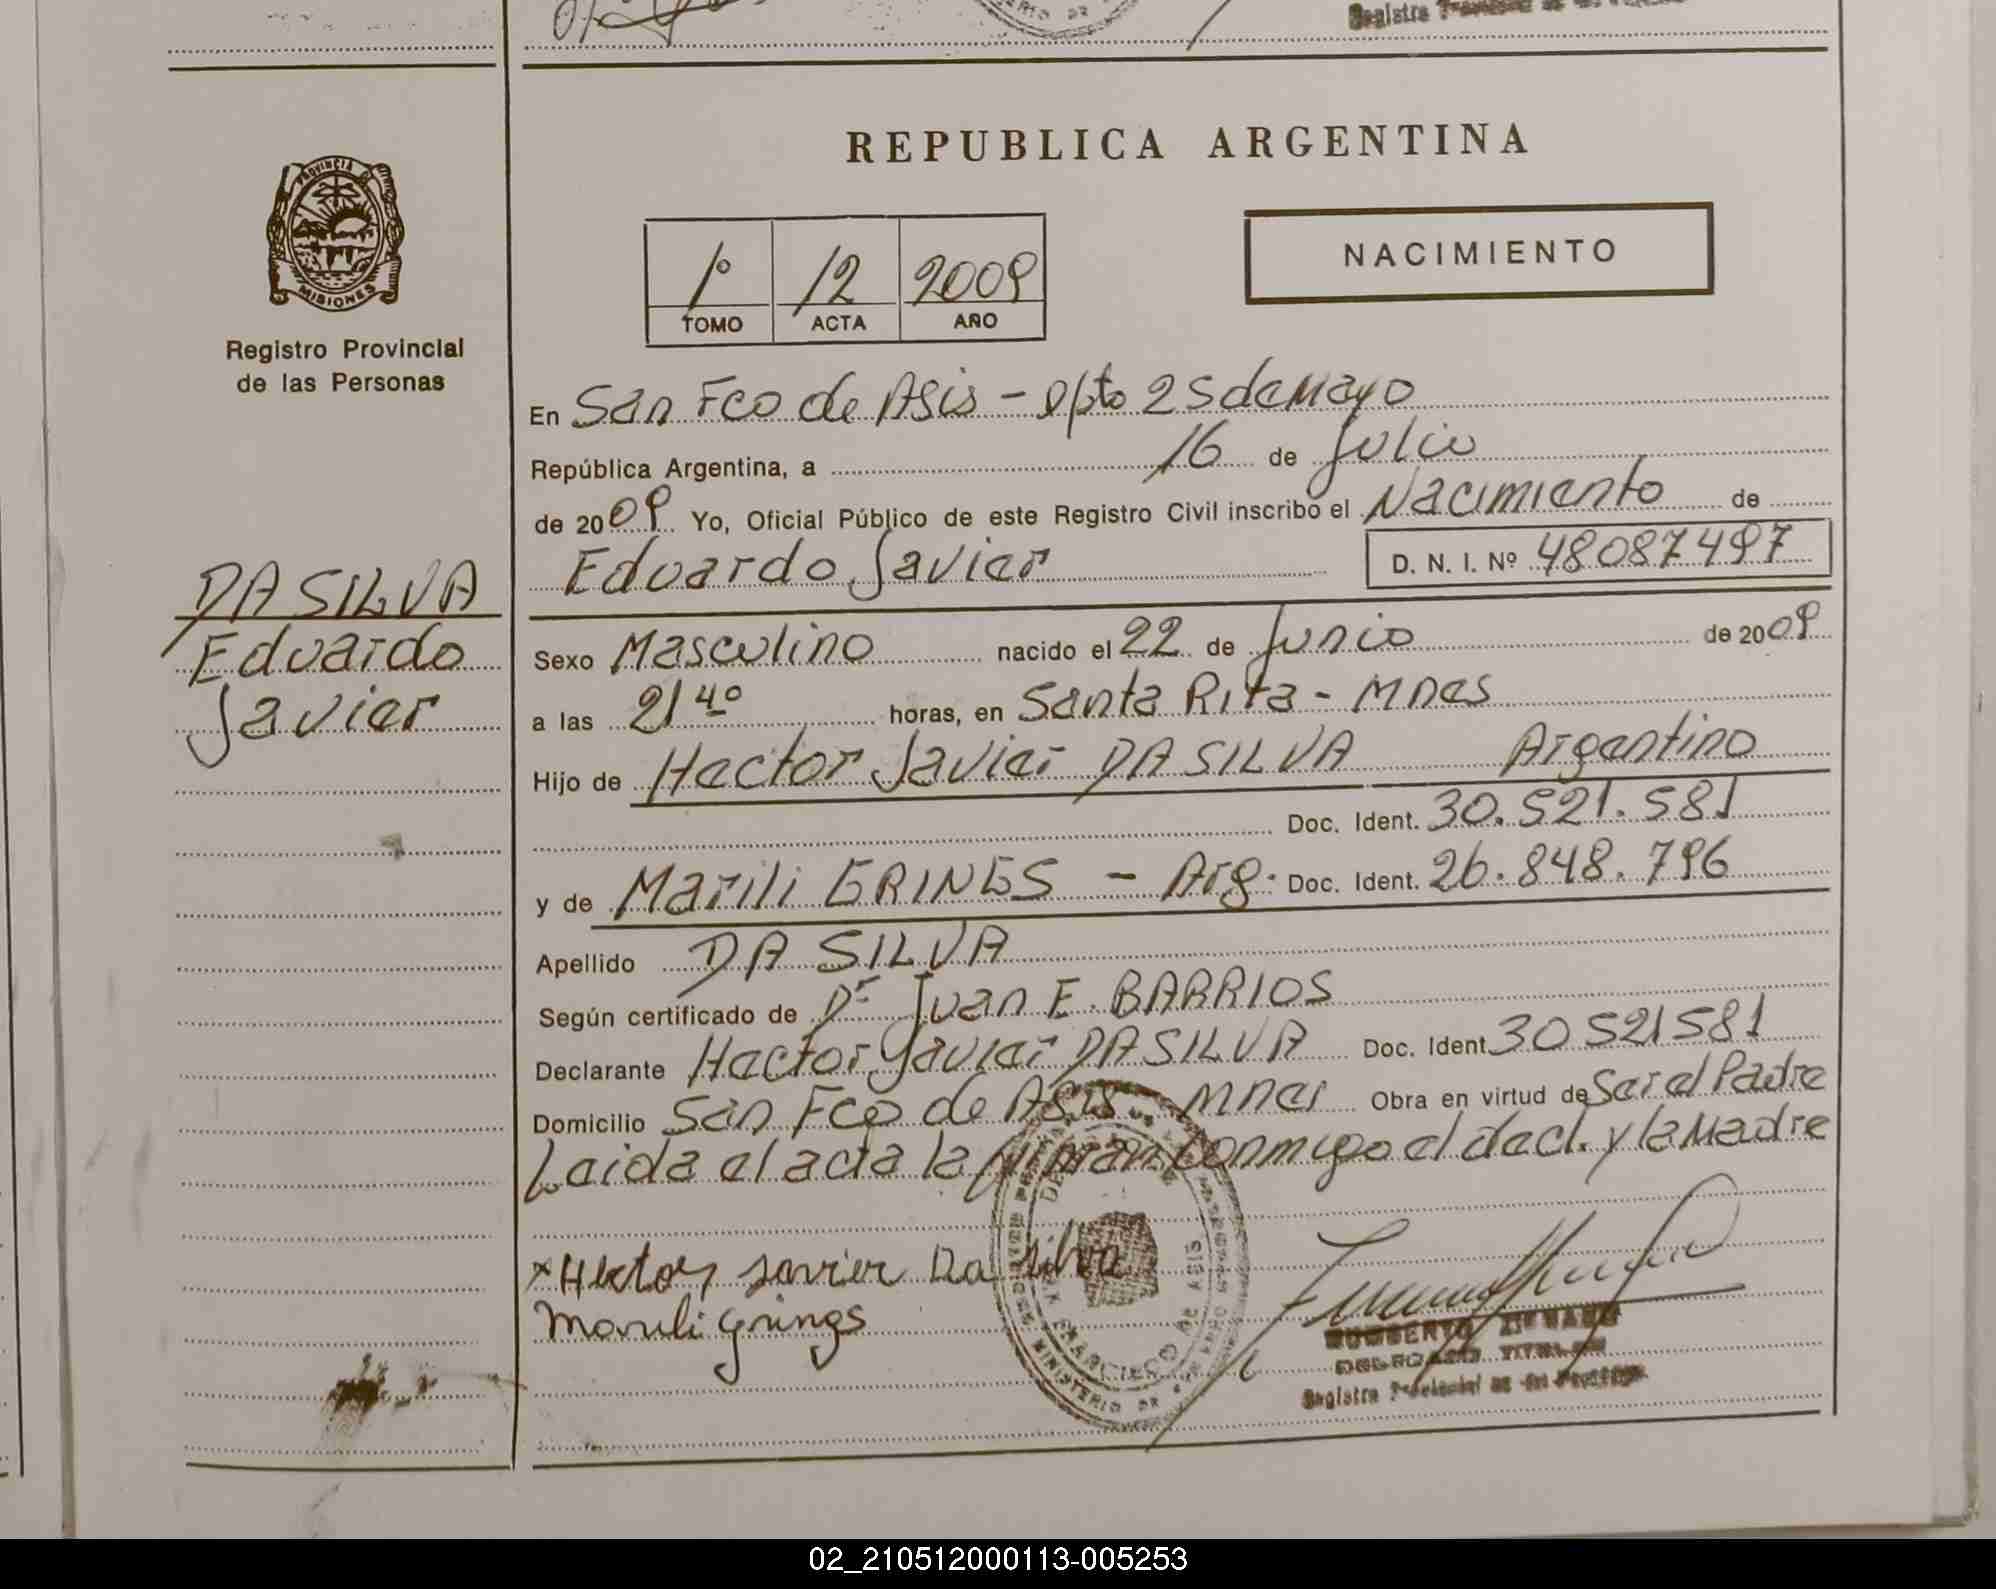 REPUBLICA ARGENTINA
PROVINCIA DE
MISIONES
Registro Provincial
de las Personas
1º 12 2009
TOMO ACTA AÑO
NACIMIENTO
En San Fco de Asis - Dpto 25 de Mayo
República Argentina, a 16 de Julio
de 2009 Yo, Oficial Público de este Registro Civil inscribo el Nacimiento de
Eduardo Javier D. N. I. Nº 48087497
DA SILVA
Eduardo
Javier
Sexo Masculino nacido el 22 de Junio de 2009
a las 21 40 horas, en Santa Rita - Mnes
Hijo de Hector Javier DA SILVA Argentino
Doc. Ident. 30.521.581
y de Marili GRINGS - Arg. Doc. Ident. 26.848.796
Apellido DA SILVA
Según certificado de Dr Juan E. BARRIOS
Declarante Hector Javier DA SILVA Doc. Ident 30521581
Domicilio San Fco de Asis Mnes Obra en virtud de Ser el Padre
Leida el acta la firman conmigo el decl. y la Madre
x Hector Javier Da Silva
Marili Grings
MINISTERIO DE
FRANCISCO DE ASIS
Registro Provincial de las Personas
02_210512000113-005253